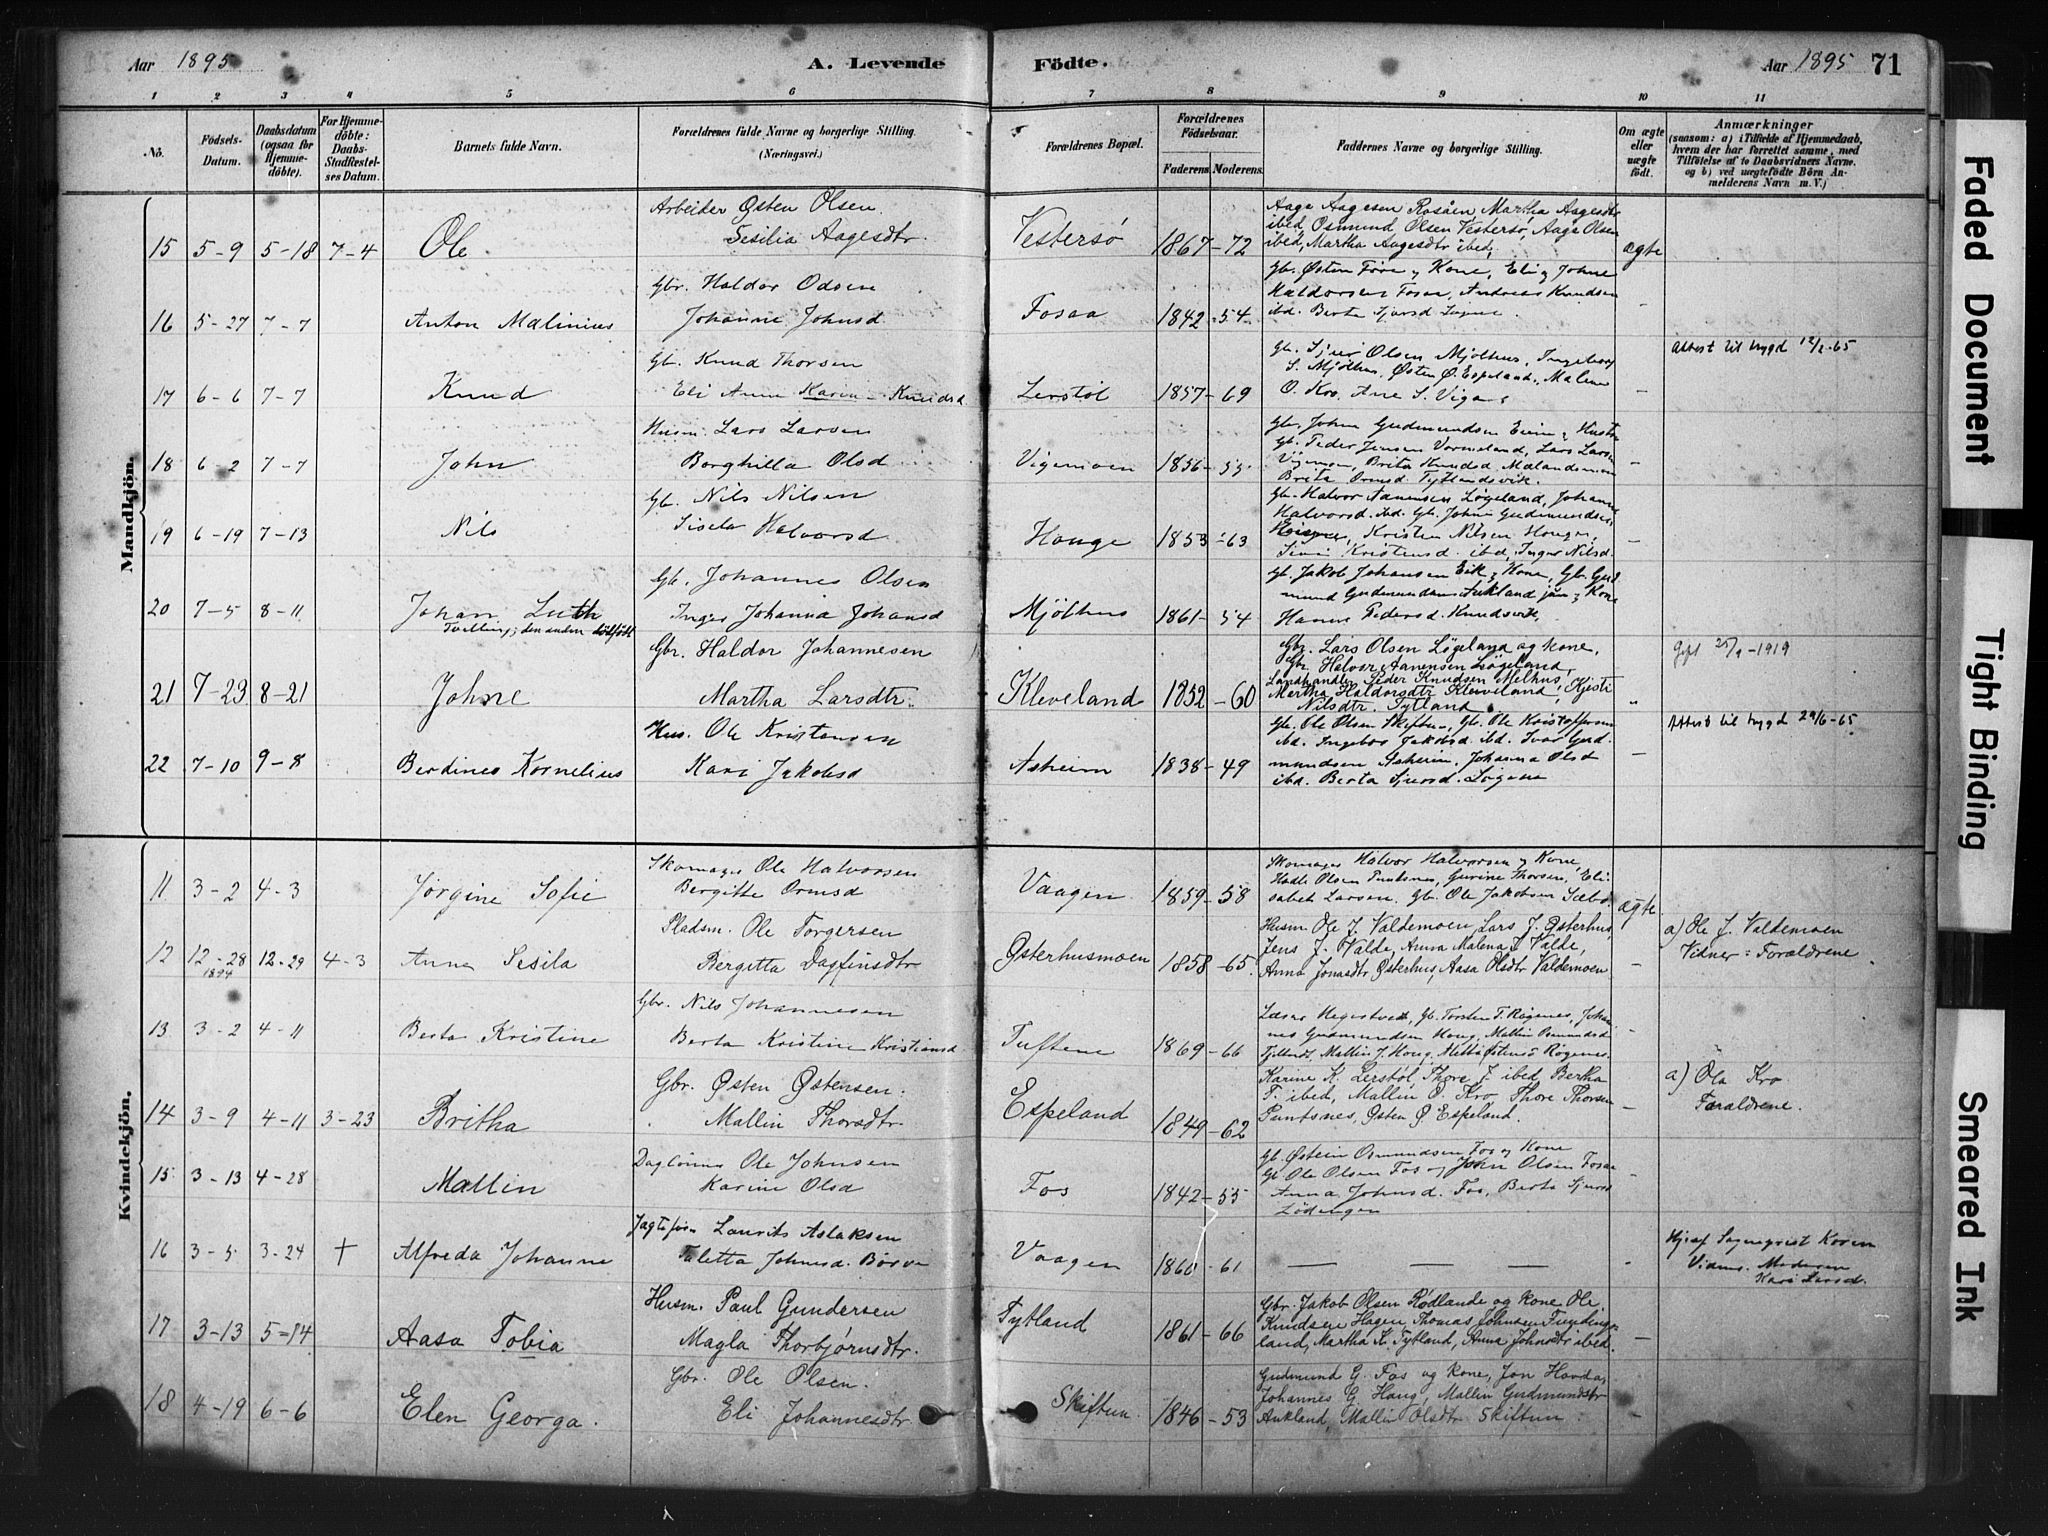 Aar 1895
A. Levende
Födte.
Aar 1895 71
1 2 3 4 5 6 7 8 9 10 11
No.
Födsels-
Datum.
Daabsdatum
(ogsaa for
Hjemme-
döbte).
For Hjemme-
döbte:
Daabs-
Stadfæstel-
ses Datum.
Barnets fulde Navn.
Forældrenes fulde Navne og borgerlige Stilling.
(Næringsvei.)
Forældrenes Bopæl.
Forældrenes
Födselsaar.
Faderens. Moderens.
Faddernes Navne og borgerlige Stilling.
Om ægte
eller
uægte
födt.
Anmærkninger
(saasom: a) i Tilfælde af Hjemmedaab,
hvem der har forrettet samme, med
Tilföielse af to Daabsvidners Navne.
og b) ved uægtefödte Börn An-
melderens Navn m. V.)
Mandkjön.
Arbeider Østen Olsen
Sesilia Aagesdtr.
15 5-9 5-18 7-4 Ole Vestersø 1867-72 ægte
Aage Aagesen Rosåen Martha Aagesdtr
ibed, Osmund Olsen Vestersø, Aage Olsen
ibed, Martha Aagesdtr ibed,
Gbr. Haldor Odsen
16 5-27 7-7 Anton Malinius Johanne Johnsd Fosaa 1842-54 -
Gb. Østen Fore & Kone, Eli & Johne
Haldorsen Fosaa, Andreas Knudsen
ibd. Berta Sjursd
Gb. Knud Thorsen
17 6-6 7-7 Knud Eli Anne Karin Knudsd Lerstöl 1857-69 -
Gb. Sjur Olsen Mjølhus, Ingeborg
S. Mjølhus, Østen Ø. Espeland, Malene
O. Kro, Ane S. Vigane
Attest til trygd 12/2-65
Husm. Lars Larsen
18 6-2 7-7 John Borghilla Olsd Vigemoen 1856-55 -
Gbr. John Gudmundsen Eiene & Hustru
Gb. Peder Jensen Vormeland, Lars Larsen
Vigemoen, Brita Knudsd Mælandsmoen
Brita Ormsd Tytlandsvik.
Gb. Nils Nilsen
19 6-19 7-13 Nils Sisela Halvorsd Houge 1853-63 -
Gb. Halvor Aanensen Løgeland, Johanna
Halvorsd. ibd. Gb. John Gudmundsen
Kristen Nilsen Houge,
Siri Kristensd. ibd, Inger Nilsd.
Gb. Johannes Olsen
20 7-5 8-11 Johan Luth Inger Johanna Johansd Mjölhus 1861-54
Tvilling; den anden dödfödt
Gb. Jakob Johansen Eik & Kone, Gb. Gud
mund Gudmundsen Aukland jun & Kone
Hanne Pedersd. Knudsvik,
Gbr. Haldor Johannesen
21 7-23 8-21 Johne Martha Larsdtr. Kleveland 1852-60 "
Gbr. Lars Olsen Løgeland og kone,
Gbr. Halvor Aanensen Løgeland,
Landhandler Peder Knudsen Melhus,
Martha Haldorsdtr Kleveland, Kjesti
Nilsdtr. Tytland.
Gift 25/9-1919
Hus. Ole Kristensen
22 7-10 9-8 Berdines Kornelius Kari Jakobsd Asheim 1838-49 -
Gb. Ole Olsen Skiftun, Gb. Ole Kristoffersen
ibd. Ingebor Jakobsd. ibd. Ivar Gud
mundsen Asheim, Johanna Olsd
ibd. Berta Sjursd.
Attest til trygd 29/6-65
Kvindekjön.
Skomager Ole Halvorsen
11 3-2 4-3 Jørgine Sofie Bergitte Ormsd Vaagen 1859-58 ægte
Skomager Halvor Halvorsen & Kone,
Olsen Puntsnes, Gurine Thorsen, Eli
sabet Larsen, Gb. Ole Jakobsen Sæbø.
Pladsm. Ole Torgersen
12 12-28 12-29 4-3 Anna Sesila Bergitta Dagfinsdtr Østerhusmoen 1858-65 -
1894
Husm Ole J. Valdemoen Lars J. Østerhus,
Jens J. Valde, Anna Malena J Valde,
Anna Jonasdtr Østerhus, Aasa Olsdtr Valdemoen
a) Ole J. Valdemoen
Vidner: Forældrene
Gbr. Nils Johannesen
13 3-2 4-11 Berta Kristine Berta Kristine Kristiansd. Tuftene 1869-66 -
Lærer Hegestvedt, Gb. Torsten T. Røgenes, Johan
nes Gudmundsen Houg, Mallin Osmundsd
Mallin J. Houg, Røgenes.
Gbr. Østen Østensen.
14 3-9 4-11 3-23 Britha Mallin Thorsdtr Espeland 1849-62 -
Karine K. Lerstøl, Thore J. ibed, Bertha
T. ibed, Mallin O. Kro, Thore Thorsen
Puntsnes, Østen Ø. Espeland.
a) Ola Kro
Forældrene.
Daglönner Ole Johnsen
15 3-13 4-28 Mallin Karine Olsd Fos 1842-55 -
Gb. Østein Osmundsen Fos & Kone
Gb Ole Olsen Fos & John Olsen Fosaa
Anna Johnsd. Fos, Berta Sjursd
Lödengen
Laurits Aslaksen
16 3-5 3-24 † Alfreda Johanne Taletta Johnsd. Børve Vaagen 1860-61 — — —
Hj. af Koren
Vidner. Moderen
Kari Larsd.
Husm. Paul Gundersen
17 3-13 5-14 Aasa Tobia Magla Thorbjørnsdtr. Tytland 1861-66 -
Gbr. Jakob Olsen Rødlande og kone Ole
Knudsen Hagen, Thomas Johnsen Funding-
land, Martha K. Tytland, Anna Johnsdtr ibed.
Gbr. Ole Olsen.
18 4-19 6-6 Elen Georga. Eli Johannesdtr Skiftun. 1846-53 -
Gudmund G. Fos og kone, Jon Hovda,
Johannes G. Haug, Mallin Gudmundsdtr
Aukland, Mallin Olsdtr. Skiftun
Faded Document
Tight Binding
Smeared Ink